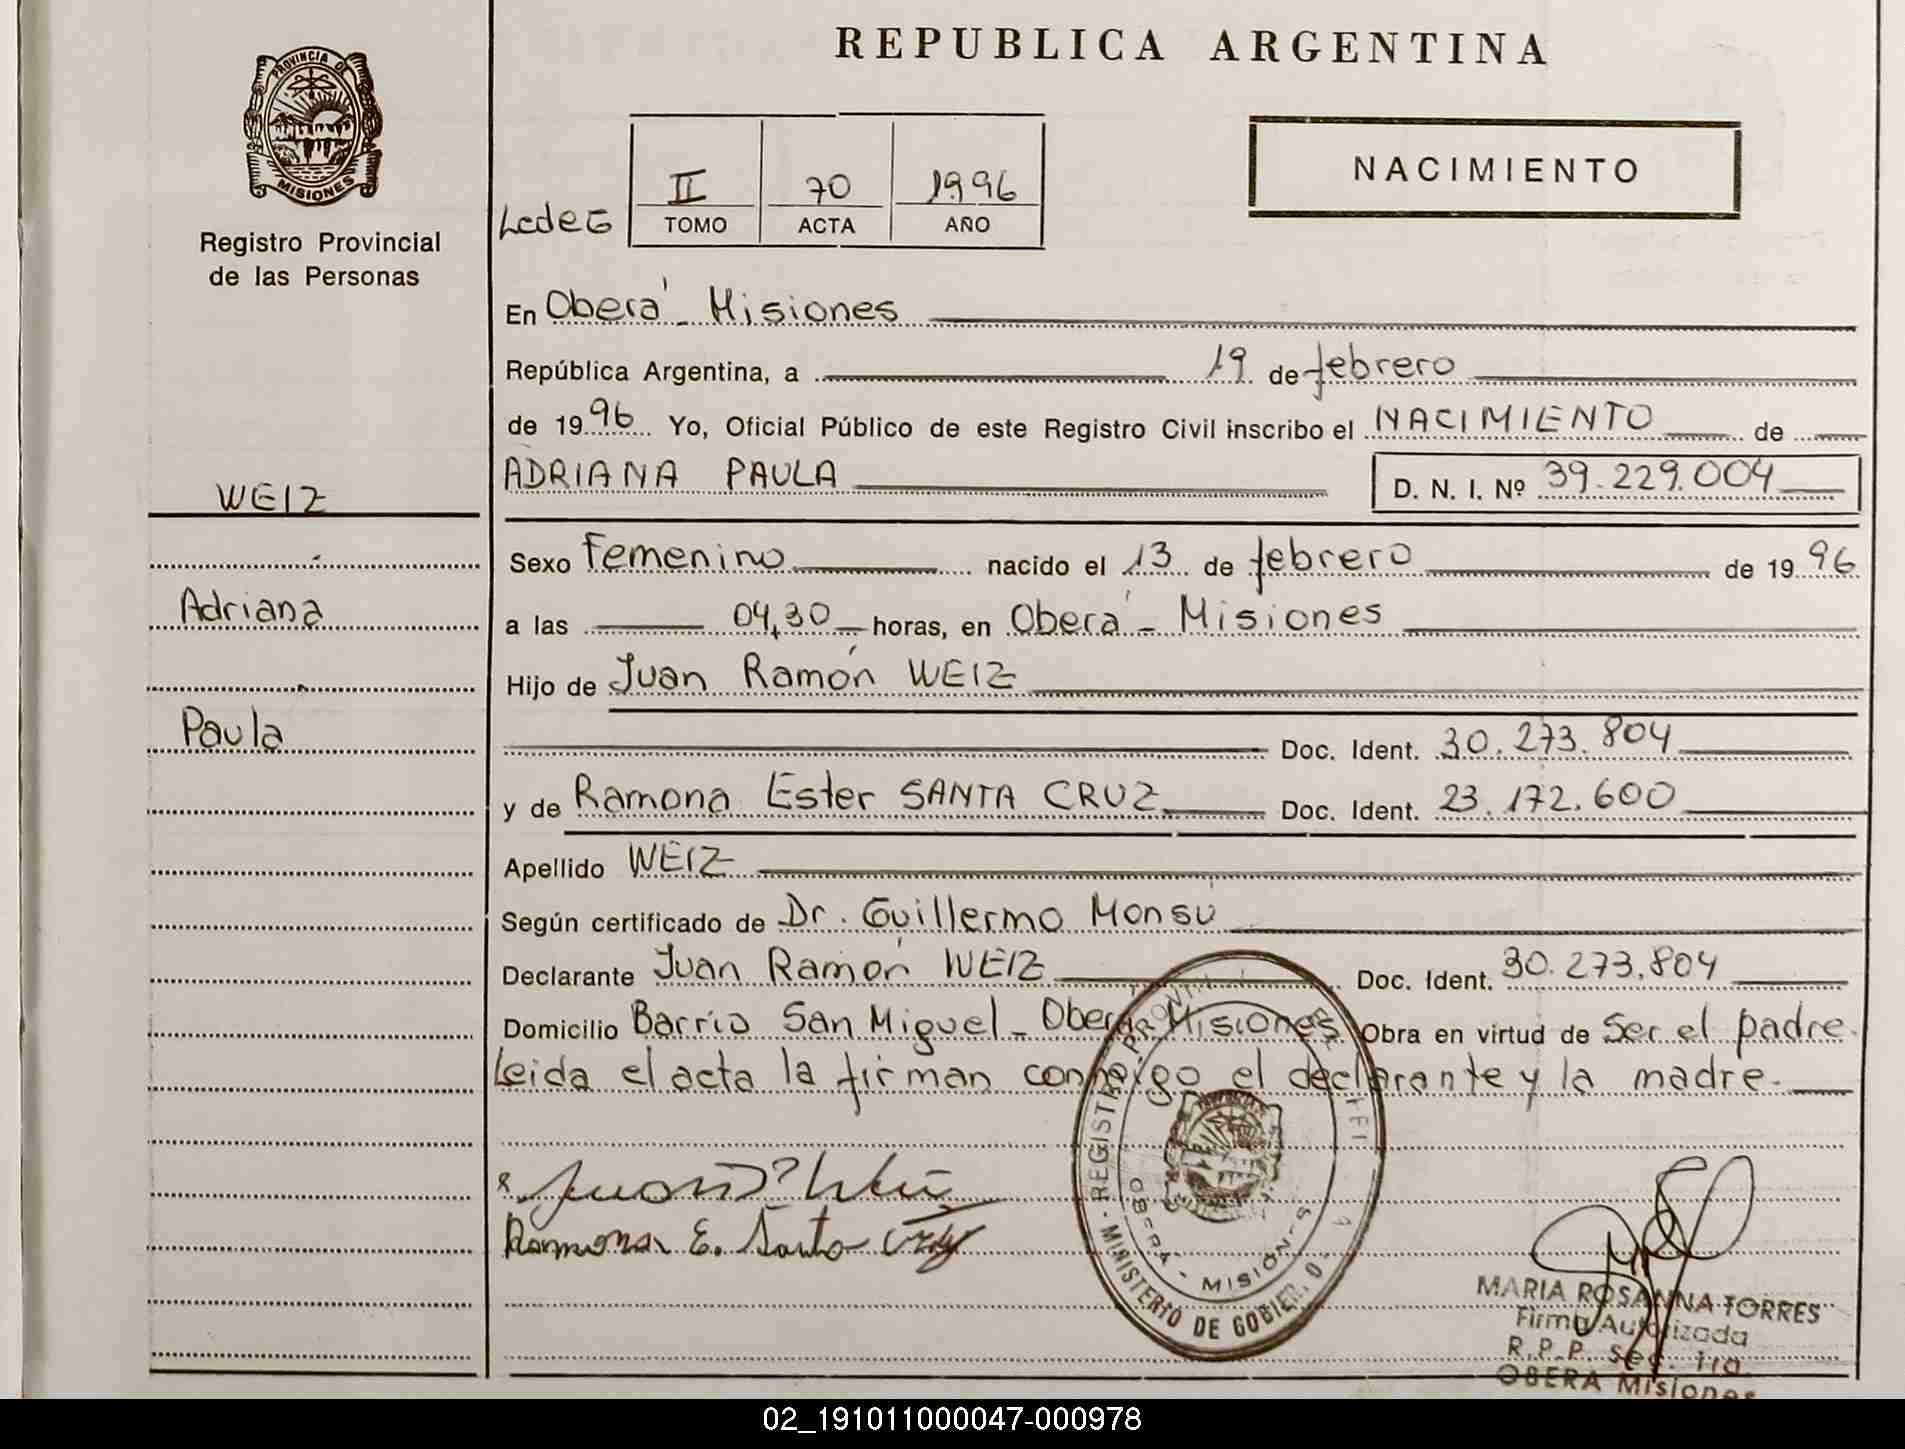 REPUBLICA ARGENTINA
PROVINCIA DE
MISIONES
Registro Provincial
de las Personas
LcdeG
II 70 1996
TOMO ACTA AÑO
NACIMIENTO
En Oberá - Misiones
República Argentina, a 19 de febrero
de 1996 Yo, Oficial Público de este Registro Civil inscribo el NACIMIENTO de
ADRIANA PAULA D. N. I. Nº 39.229.004
WEIZ
Adriana
Paula
Sexo Femenino nacido el 13 de febrero de 1996
a las 04,30 horas, en Oberá - Misiones
Hijo de Juan Ramón WEIZ
Doc. Ident. 30.273.804
y de Ramona Ester SANTA CRUZ Doc. Ident. 23.172.600
Apellido WEIZ
Según certificado de Dr. Guillermo Monsú
Declarante Juan Ramón WEIZ Doc. Ident. 30.273.804
Domicilio Barrio San Miguel - Oberá Misiones Obra en virtud de Ser el padre.
Leida el acta la firman conmigo el declarante y la madre.
Ramona E. Santa Cruz
REGISTRO PROVINCIAL
MINISTERIO DE GOBIERNO
OBERA - MISIONES
MARIA ROSANNA TORRES
Firma Autorizada
R.P.P. Sec. 1ra.
OBERA Misiones
02_191011000047-000978